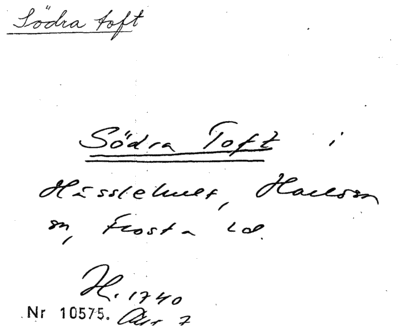 Södra toft
Södra Toft i
Hässlehult, Harlösa
sn, Frosta hd.
H. 1740
Nr 10575. Akt 7